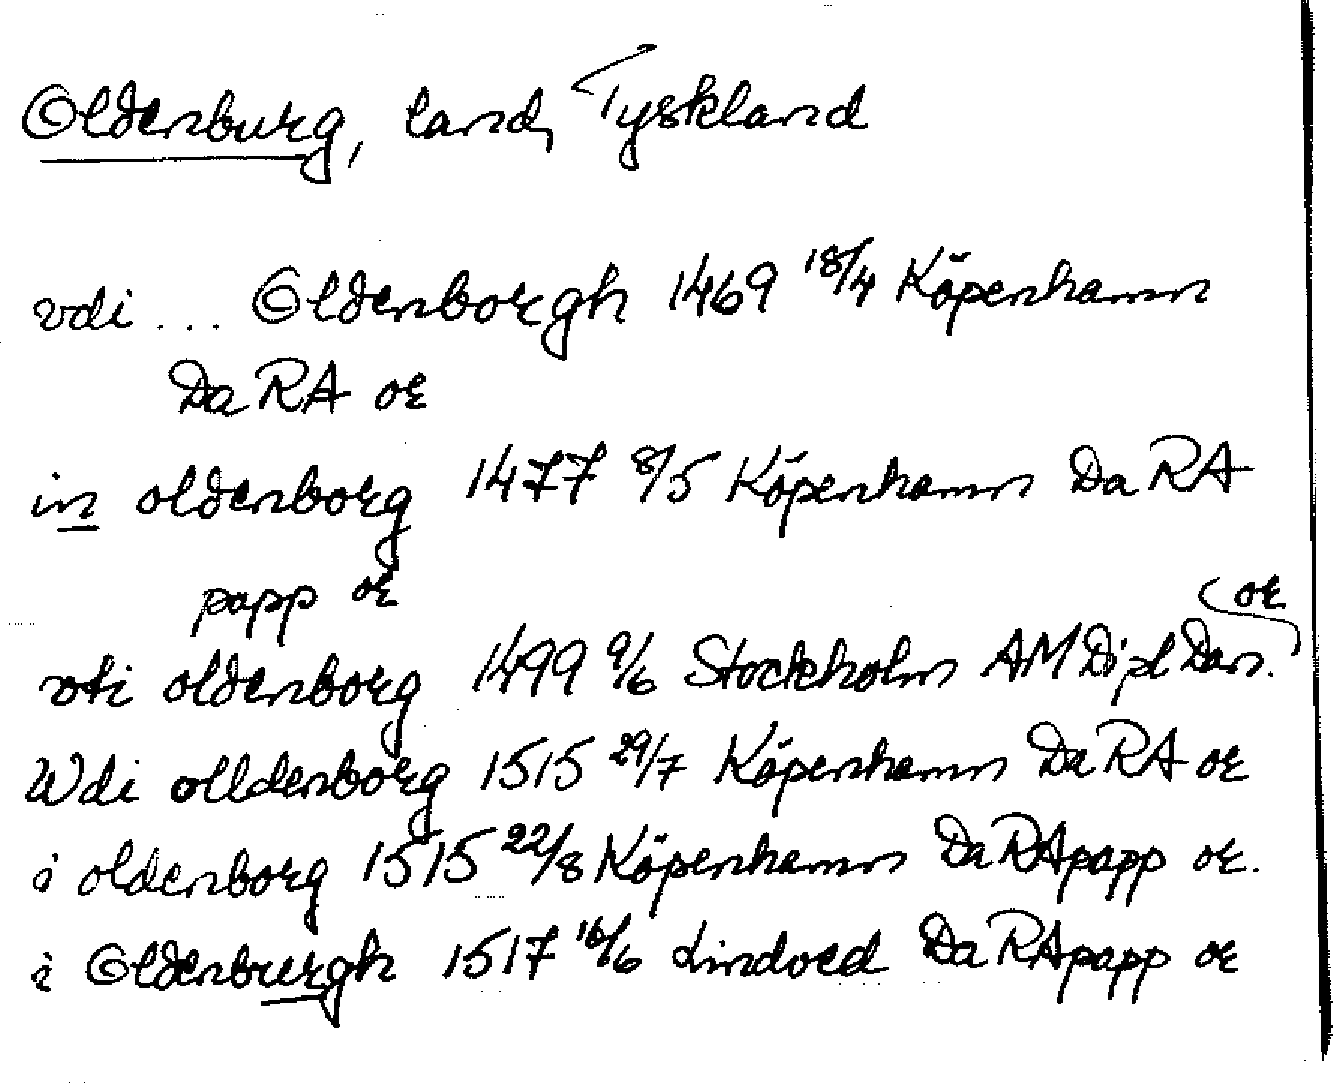 Oldenburg, land, Tyskland
vdi ... Oldenborgh 1469 18/4 Köpenhamn
DaRA or
in oldenborg 1477 8/5 Köpenhamn DaRA
papp or
vti oldenborg 1499 9/6 Stockholm AM Dipl Dan. or
Wdi olldenborg 1515 29/7 Köpenhamn DaRA or
i oldenborg 1515 22/8 Köpenhamn DaRApapp or.
i Oldenburgh 1517 16/6 Lindved DaRApapp or